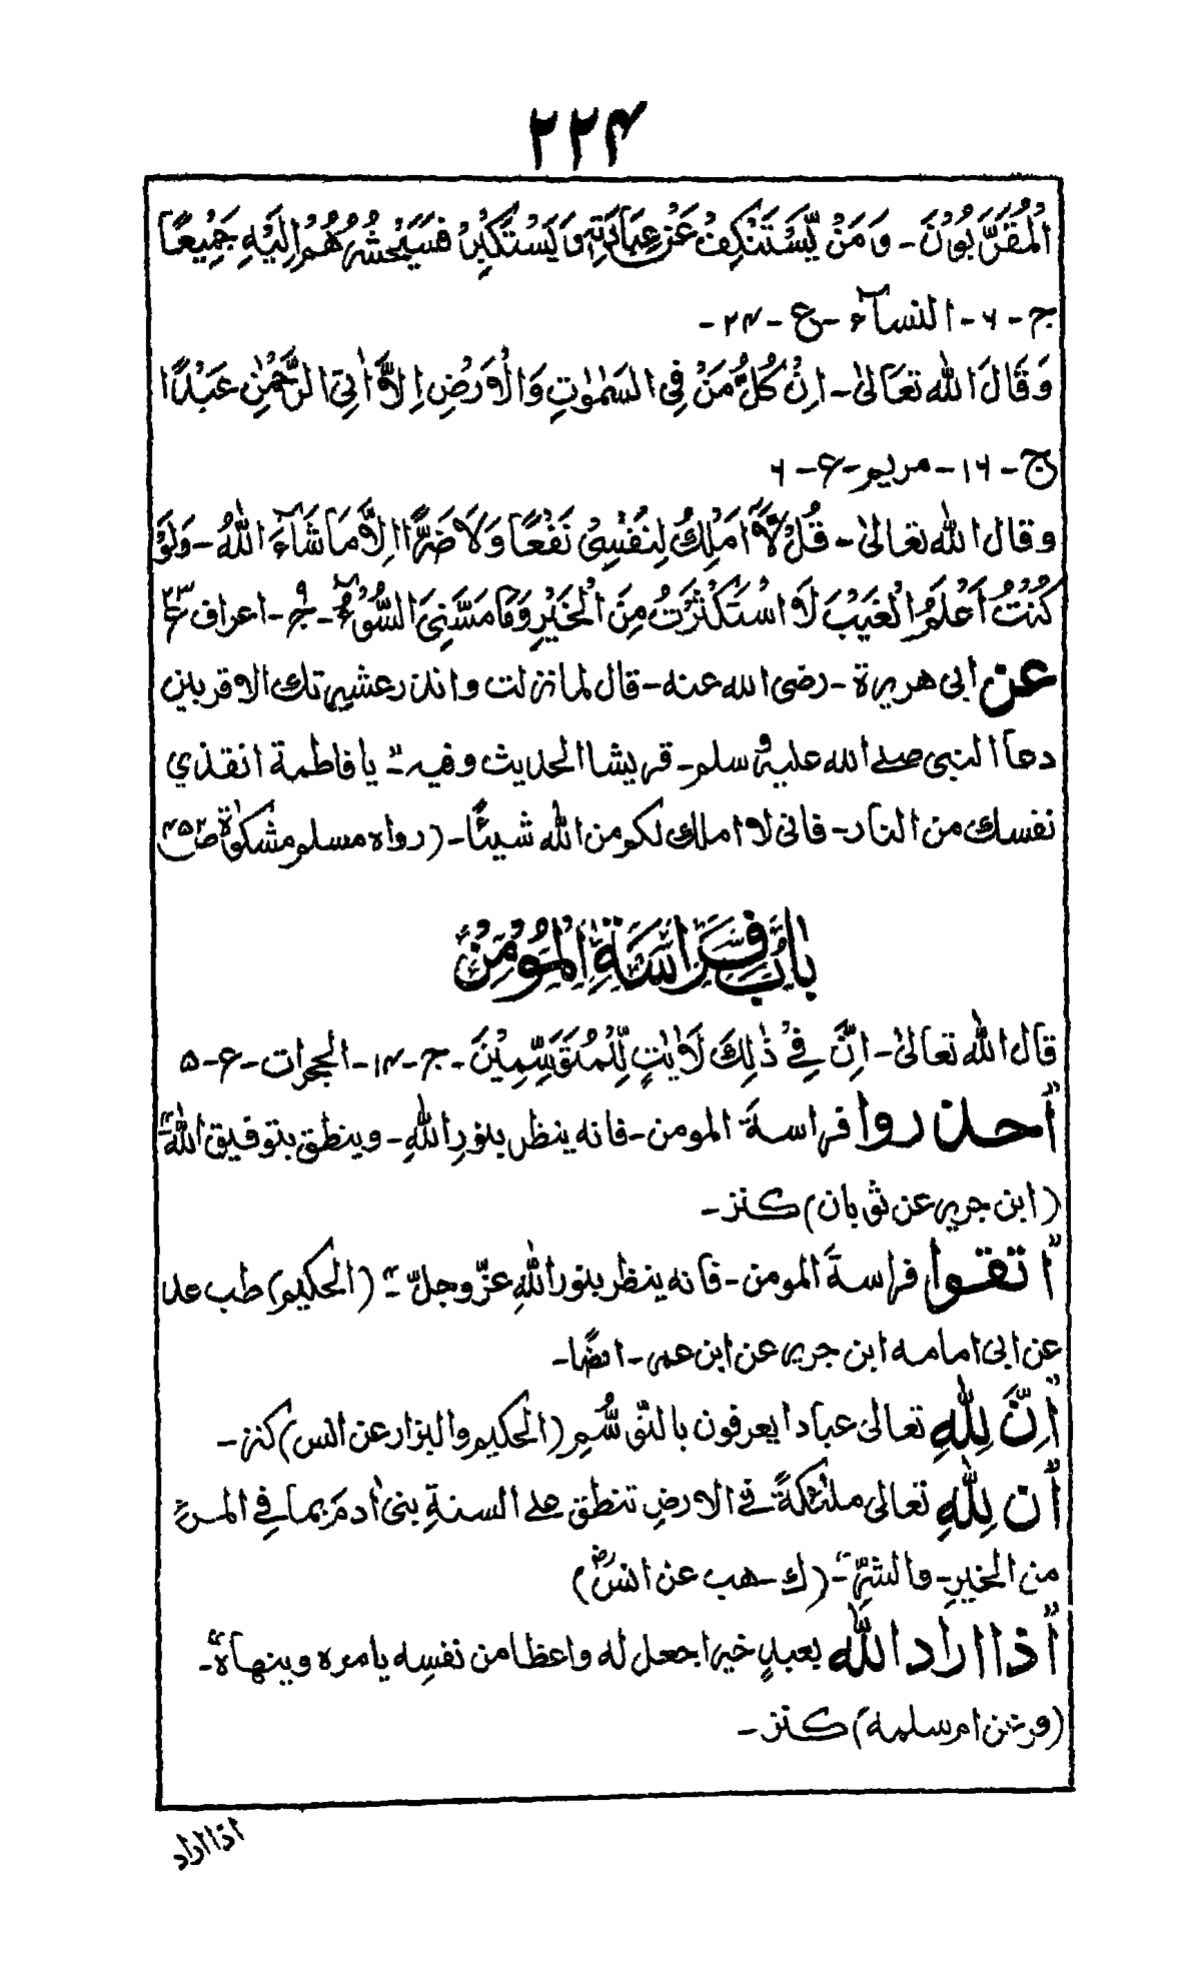 ۲۲۴
الْمُقَرَّبُوْنَ - وَمَنْ يَّسْتَنْكِفْ عَنْ عِبَادَتِهٖ وَيَسْتَكْبِرْ فَسَيَحْشُرُهُمْ اِلَيْهِ جَمِيْعًا
ج - ۶ - النسآء - ع - ۲۴ -
وَقَالَ اللّٰه تَعَالىٰ - اِنْ كُلُّ مَنْ فِى السَّمٰوٰتِ وَالْاَرْضِ اِلَّا اٰتِى الرَّحْمٰنِ عَبْدًا
ج - ۱۶ - مريم - ع - ۶
وقال اللّٰه تعالىٰ - قُلْ لَّا اَمْلِكُ لِنَفْسِىْ نَفْعًا وَلَا ضَرًّا اِلَّا مَا شَآءَ اللّٰهُ - وَلَوْ
كُنْتُ اَعْلَمُ الْغَيْبَ لَا اسْتَكْثَرْتُ مِنَ الْخَيْرِ وَمَا مَسَّنِىَ السُّوْٓءُ - ج۹ - اعراف ع۲۳
عن ابى هريرة - رضى الله عنه - قال لما نزلت وانذر عشيرتك الاقربين
دعا النبى صلے الله عليه وسلم - قريشا الحديث وفيه ـ يا فاطمة انقذي
نفسك من النار - فانى لا املك لكم من اللّٰه شيئًا - (رواه مسلم مشكوٰة ص۴۵۲
بَابُ فِرَاسَةِ الْمُوْمِنْ
قال اللّٰه تعالىٰ - اِنَّ فِىْ ذٰلِكَ لَاٰيٰتٍ لِّلْمُتَوَسِّمِيْنَ - ج - ۱۴ - الحجرات - ع - ۵
"احذروا فراسةَ المومن - فانه ينظر بنورِ اللّٰهِ - وينطق بتوفيق اللّٰهِ"
(ابن جرير عن ثوبان) كنز -
"اتقوا فراسةَ المومن - فانه ينظر بنور اللّٰهِ عزّ وجلّ" (الحكيم) طب عد
عن ابى امامه ابن جرير عن ابن عمر - ايضًا -
"اِنَّ لِلّٰهِ تعالى عبادا يعرفون بالتوسُّمِ (الحكيم والبزار عن انس) كنز -
"ان لِلّٰهِ تعالى ملئكةً فى الارضِ تنطق على السنةِ بنى اٰدمَ بما فِى المرءِ
من الخيرِ - والشرِّ" (ك - هب عن انسؓ)
"اذا اراد اللّٰه بعبدٍ خيرا جعل له واعظا من نفسِه يامره وينهاه" -
(فر عن ام سلمه) كنز -
اذا اراد